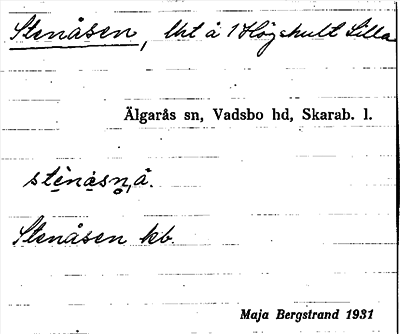 Stenåsen, Uxt å 1 Högshult Lilla
Älgarås sn, Vadsbo hd, Skarab. l.
stènåsn, å.
Stenåsen kb.
Maja Bergstrand 1931